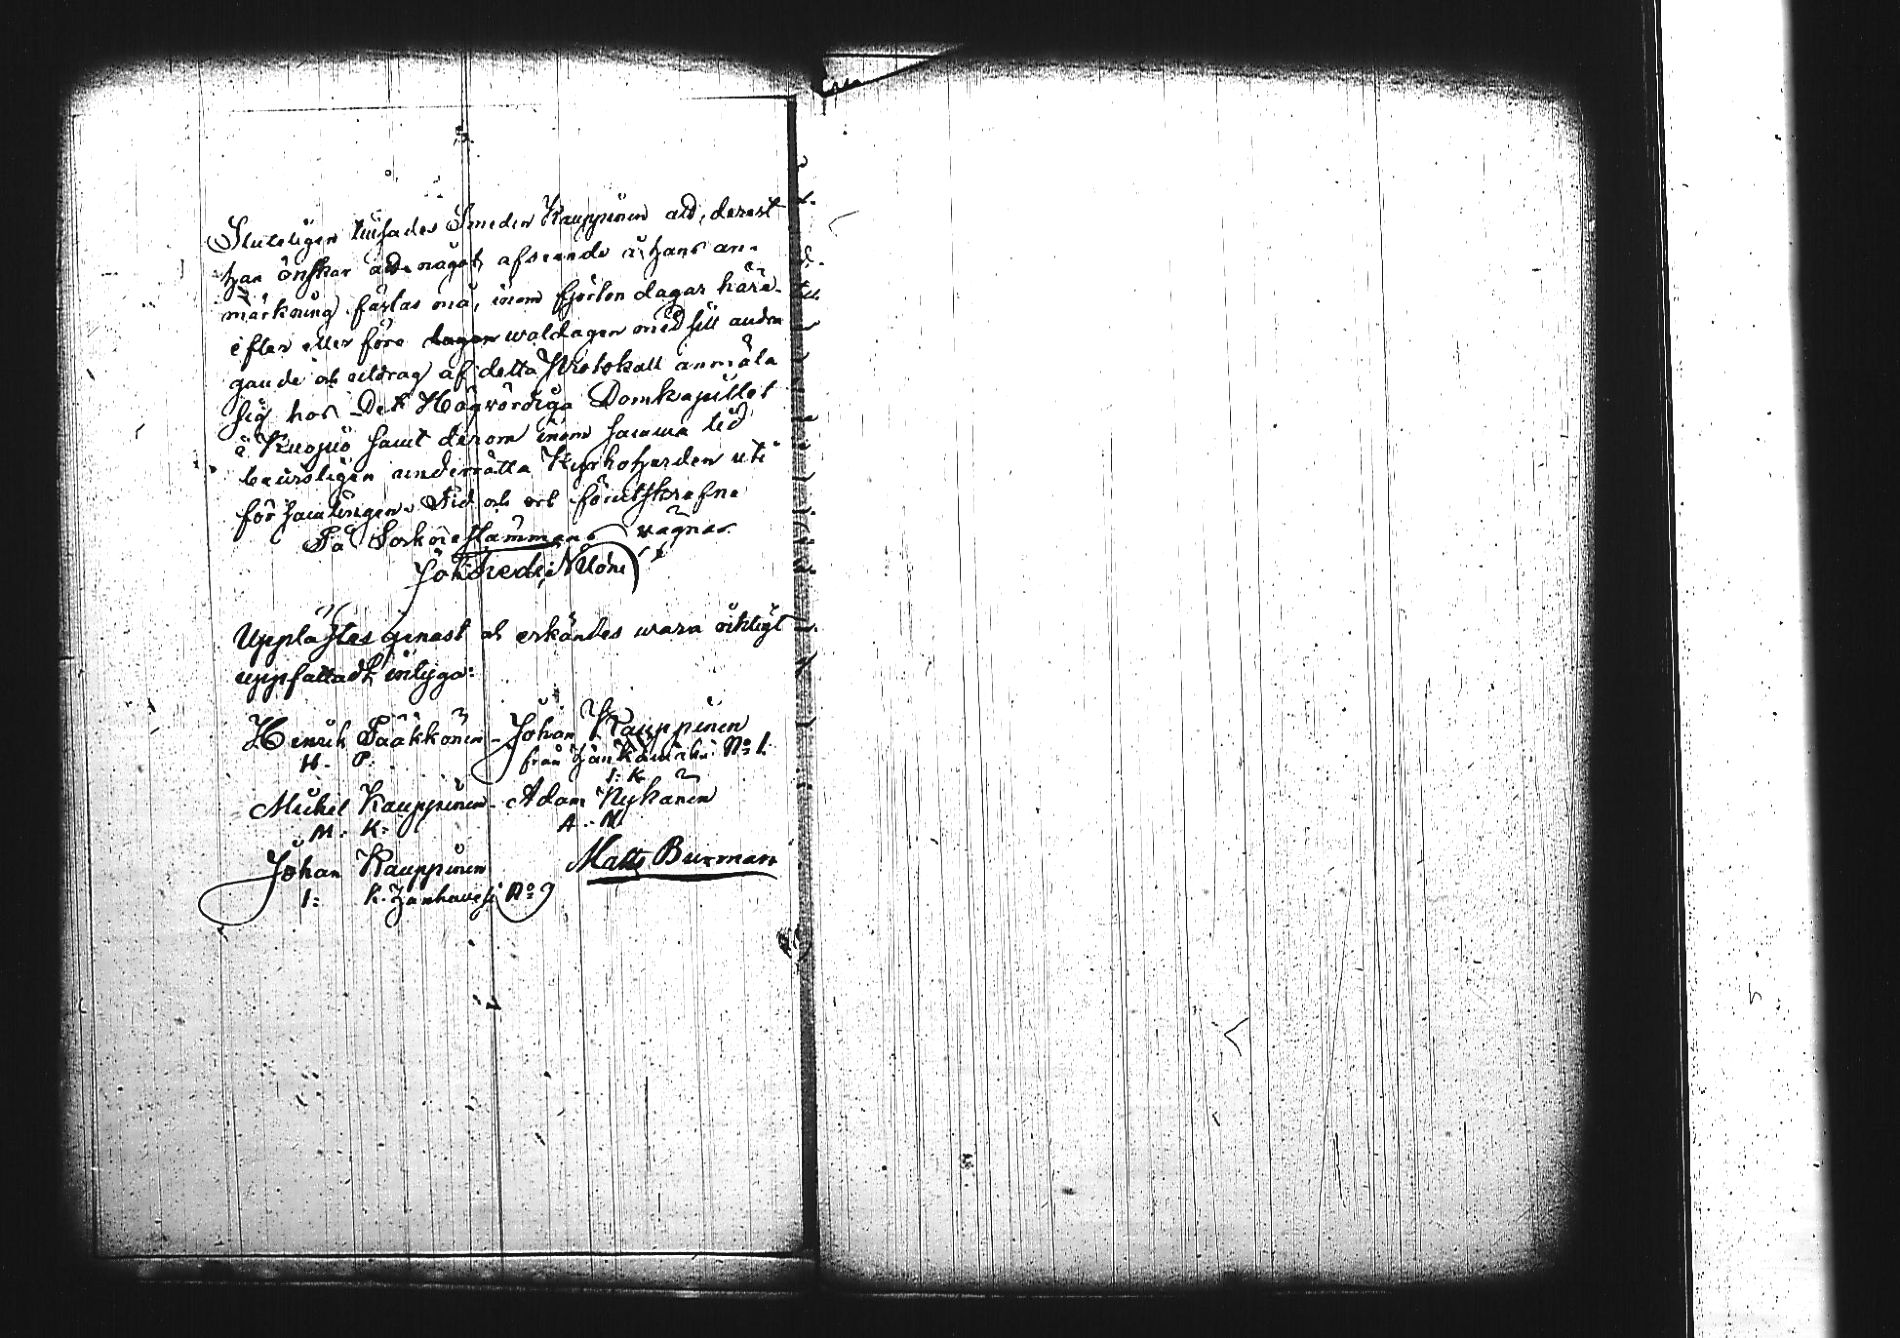 Sluteligen tillsades Smeden Kauppinen att, derest
han önskar att något afseende å hans an-
märkning fästas må, inom fjorton dagar här-
efter eller före dagen waldagen med sitt andra
gande och utdrag af detta Protokoll anmäla
sig hos Det Högvördiga Domkapitlet
i Kuopio samt derom inom samma tid
bevisligen underrätta Kyrkoherden uti
församlingen. Tid och ort förutskrefne
På Sockne Stämmans vägnar.
Joh Fredr
Upplästes genast och erkändes wara riktigt
uppfattadt, intyga:
Henrik Pääkkönen - Johan Kauppinen
H. P. från No 1.
I: K.
Michel Kauppinen - Adam Nykänen
M. K. A. N.
Johan Kauppinen Matts Burman
I: K. Hankavesi No 9